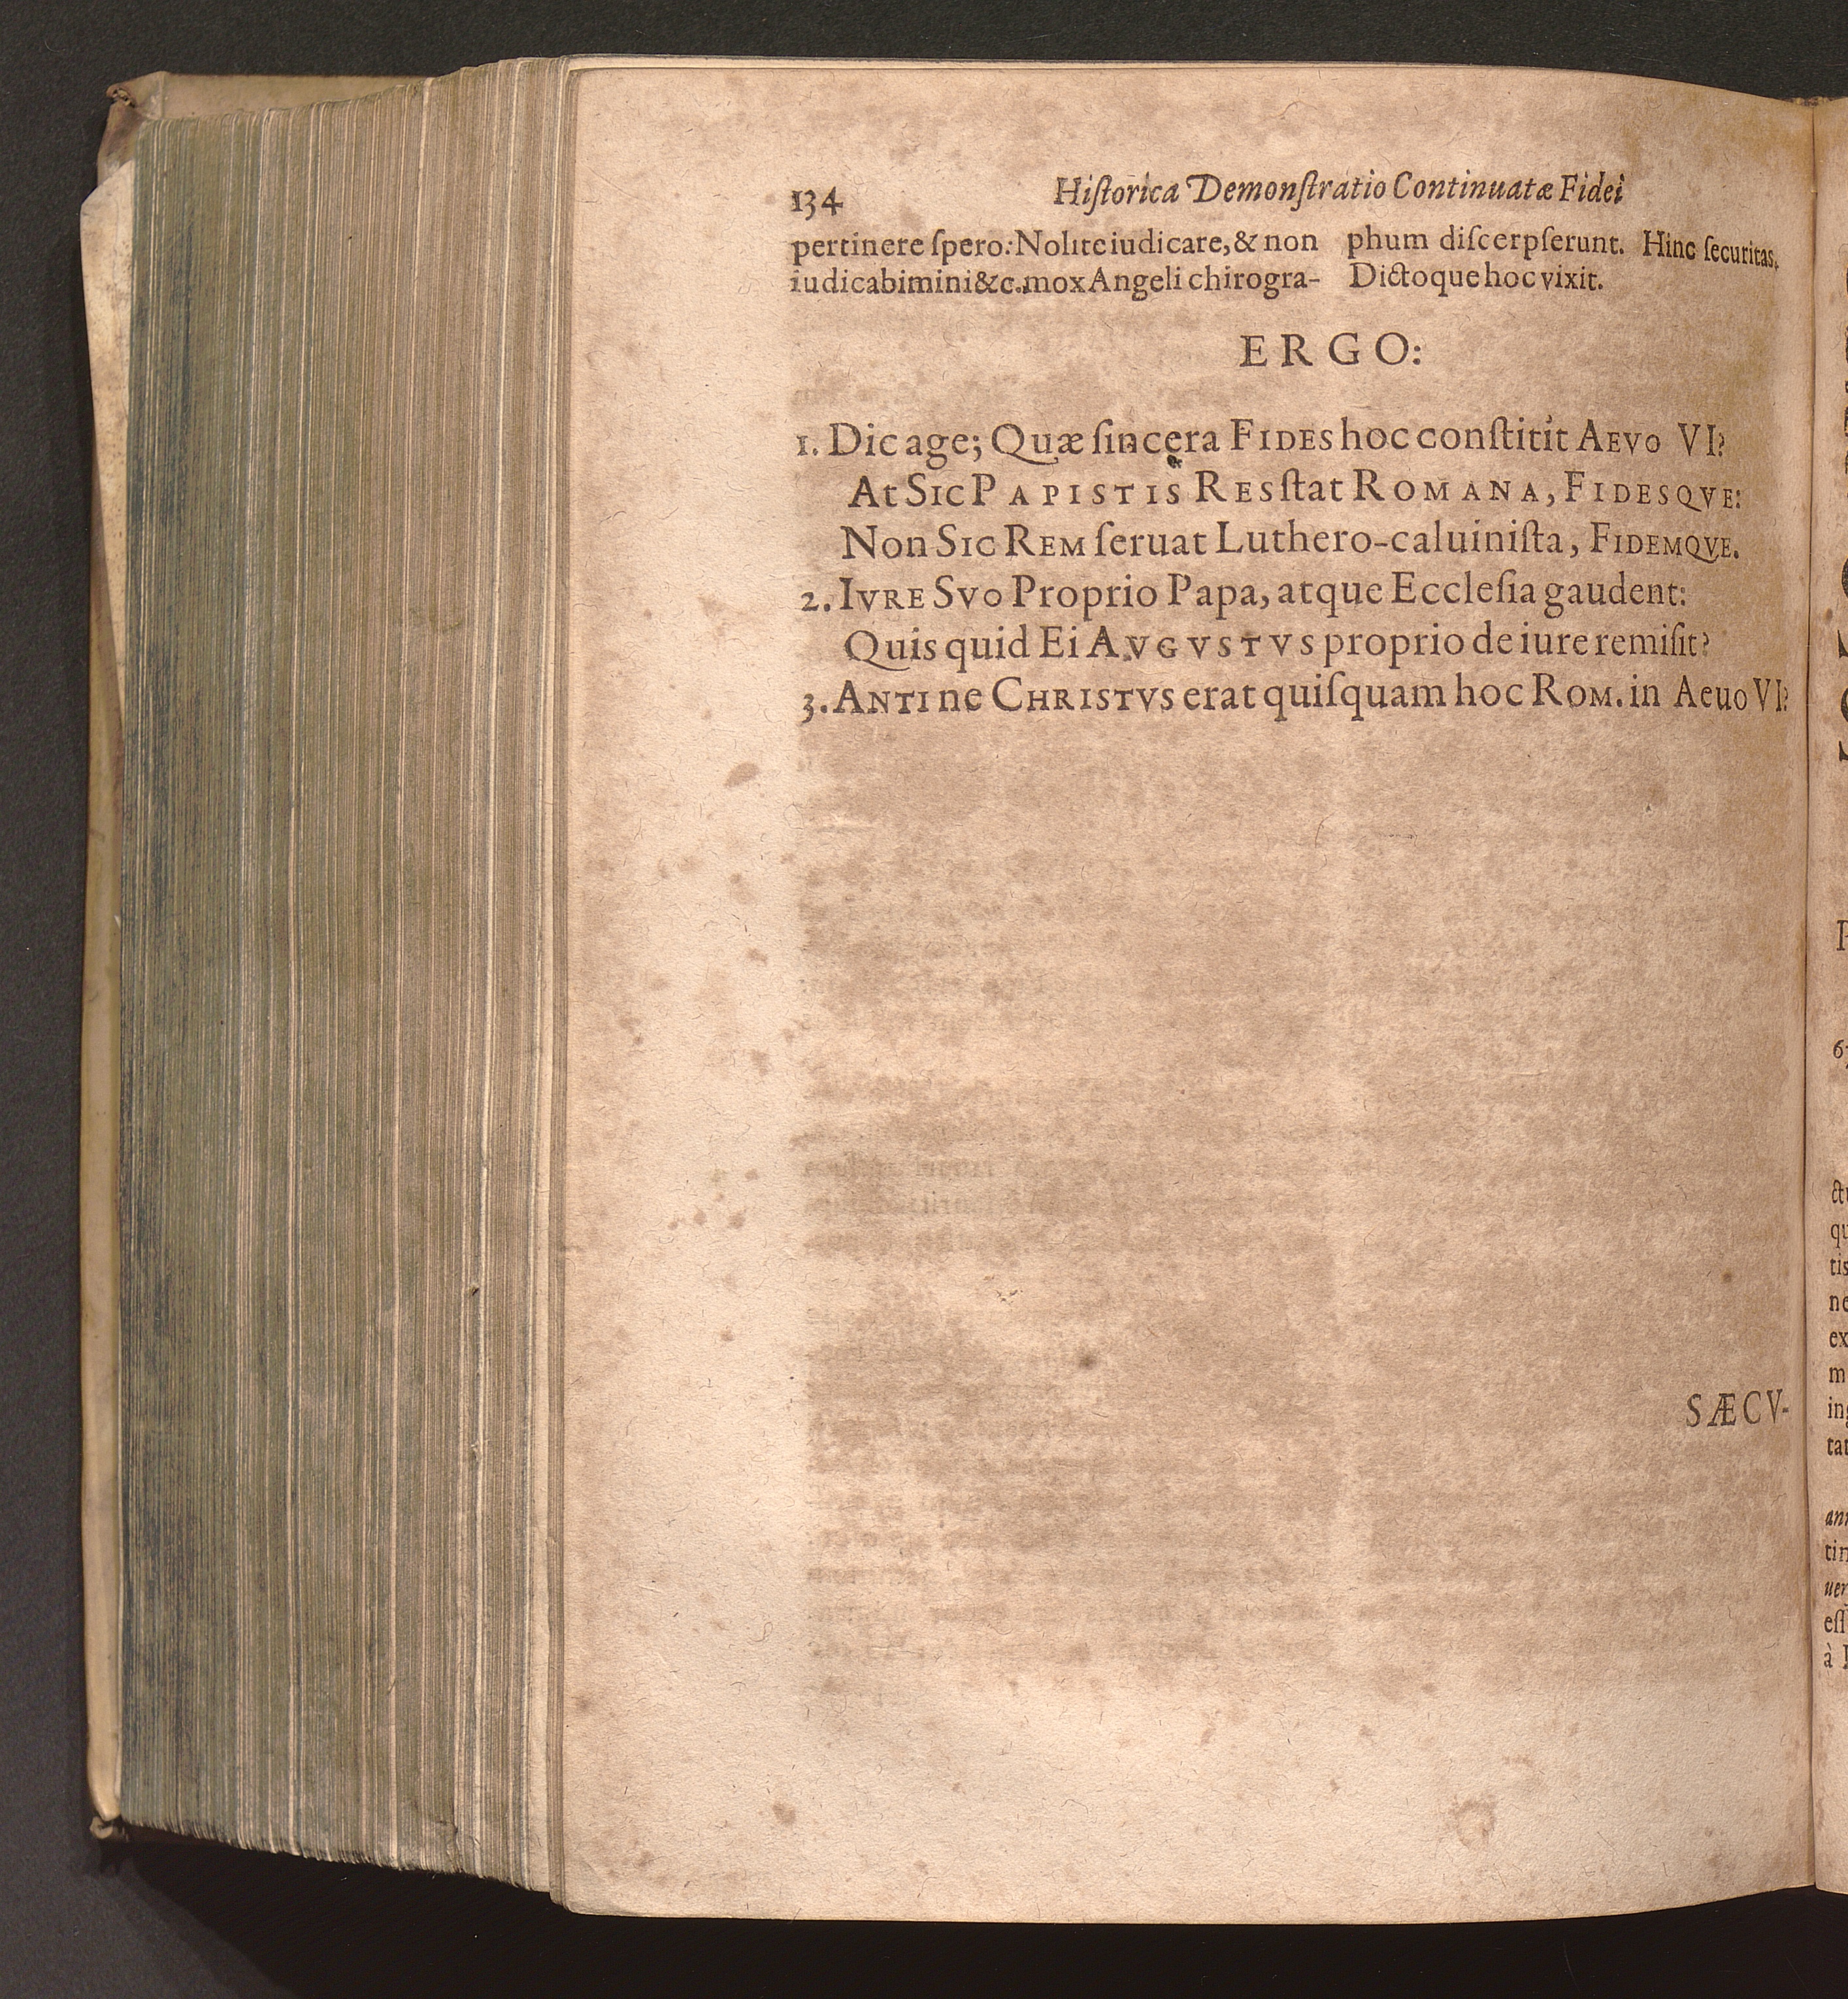 134 Hiſtorica Demonſtratio Continuatæ Fidei
pertinere ſpero: Nolite iudicare, & non
iudicabimini &c. mox Angeli chirogra-
phum diſcerpſerunt. Hinc ſecuritas.
Dictoque hoc vixit.
ERGO:
1. Dic age; Quæ ſincera FIDES hoc conſtitit AEVO VI?
At SIC PAPISTIS RES ſtat ROMANA, FIDESQVE:
Non SIC REM ſeruat Luthero-caluiniſta, FIDEMQVE.
2. IVRE SVO Proprio Papa, atque Eccleſia gaudent:
Quis quid Ei AVGVSTVS proprio de iure remiſit?
3. ANTI ne CHRISTVS erat quiſquam hoc ROM. in Aeuo VI?
SÆCV-